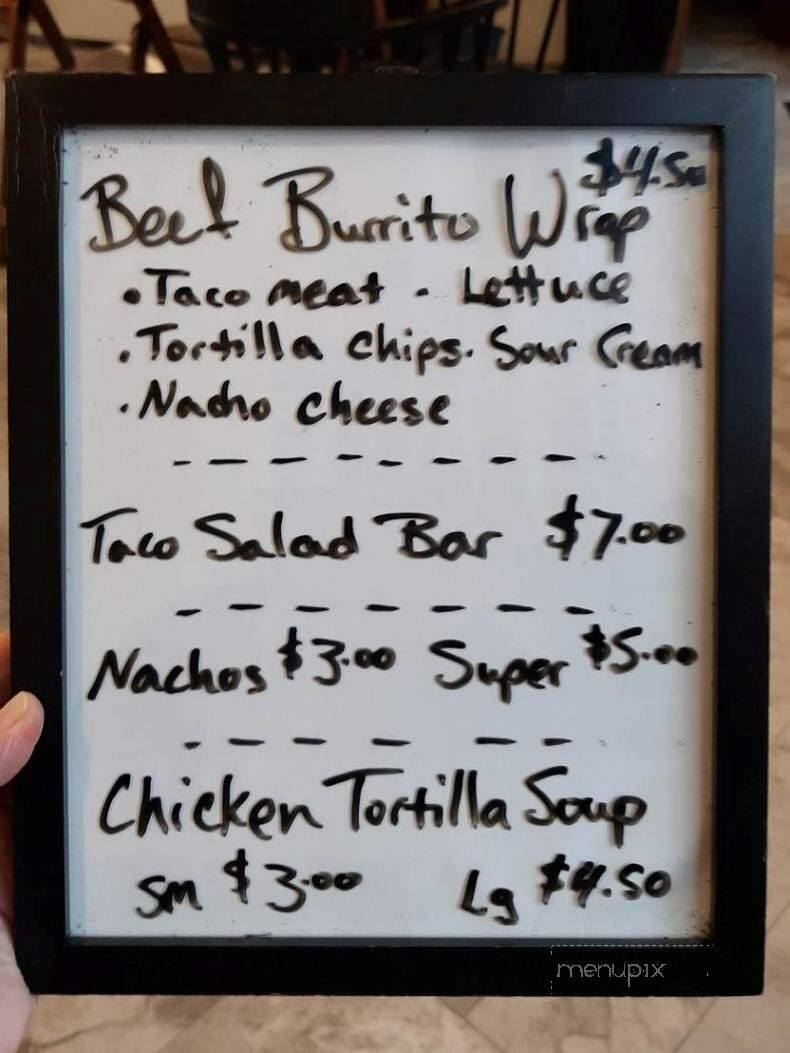 Beef Burrito Wrap $4.50
• Taco meat - Lettuce
• Tortilla chips • Sour Cream
• Nacho cheese
- - - - - - -
Taco Salad Bar $7.00
- - - - - - -
Nachos $3.00 Super $5.00
- - - - - -
Chicken Tortilla Soup
Sm $3.00 Lg $4.50
menupix